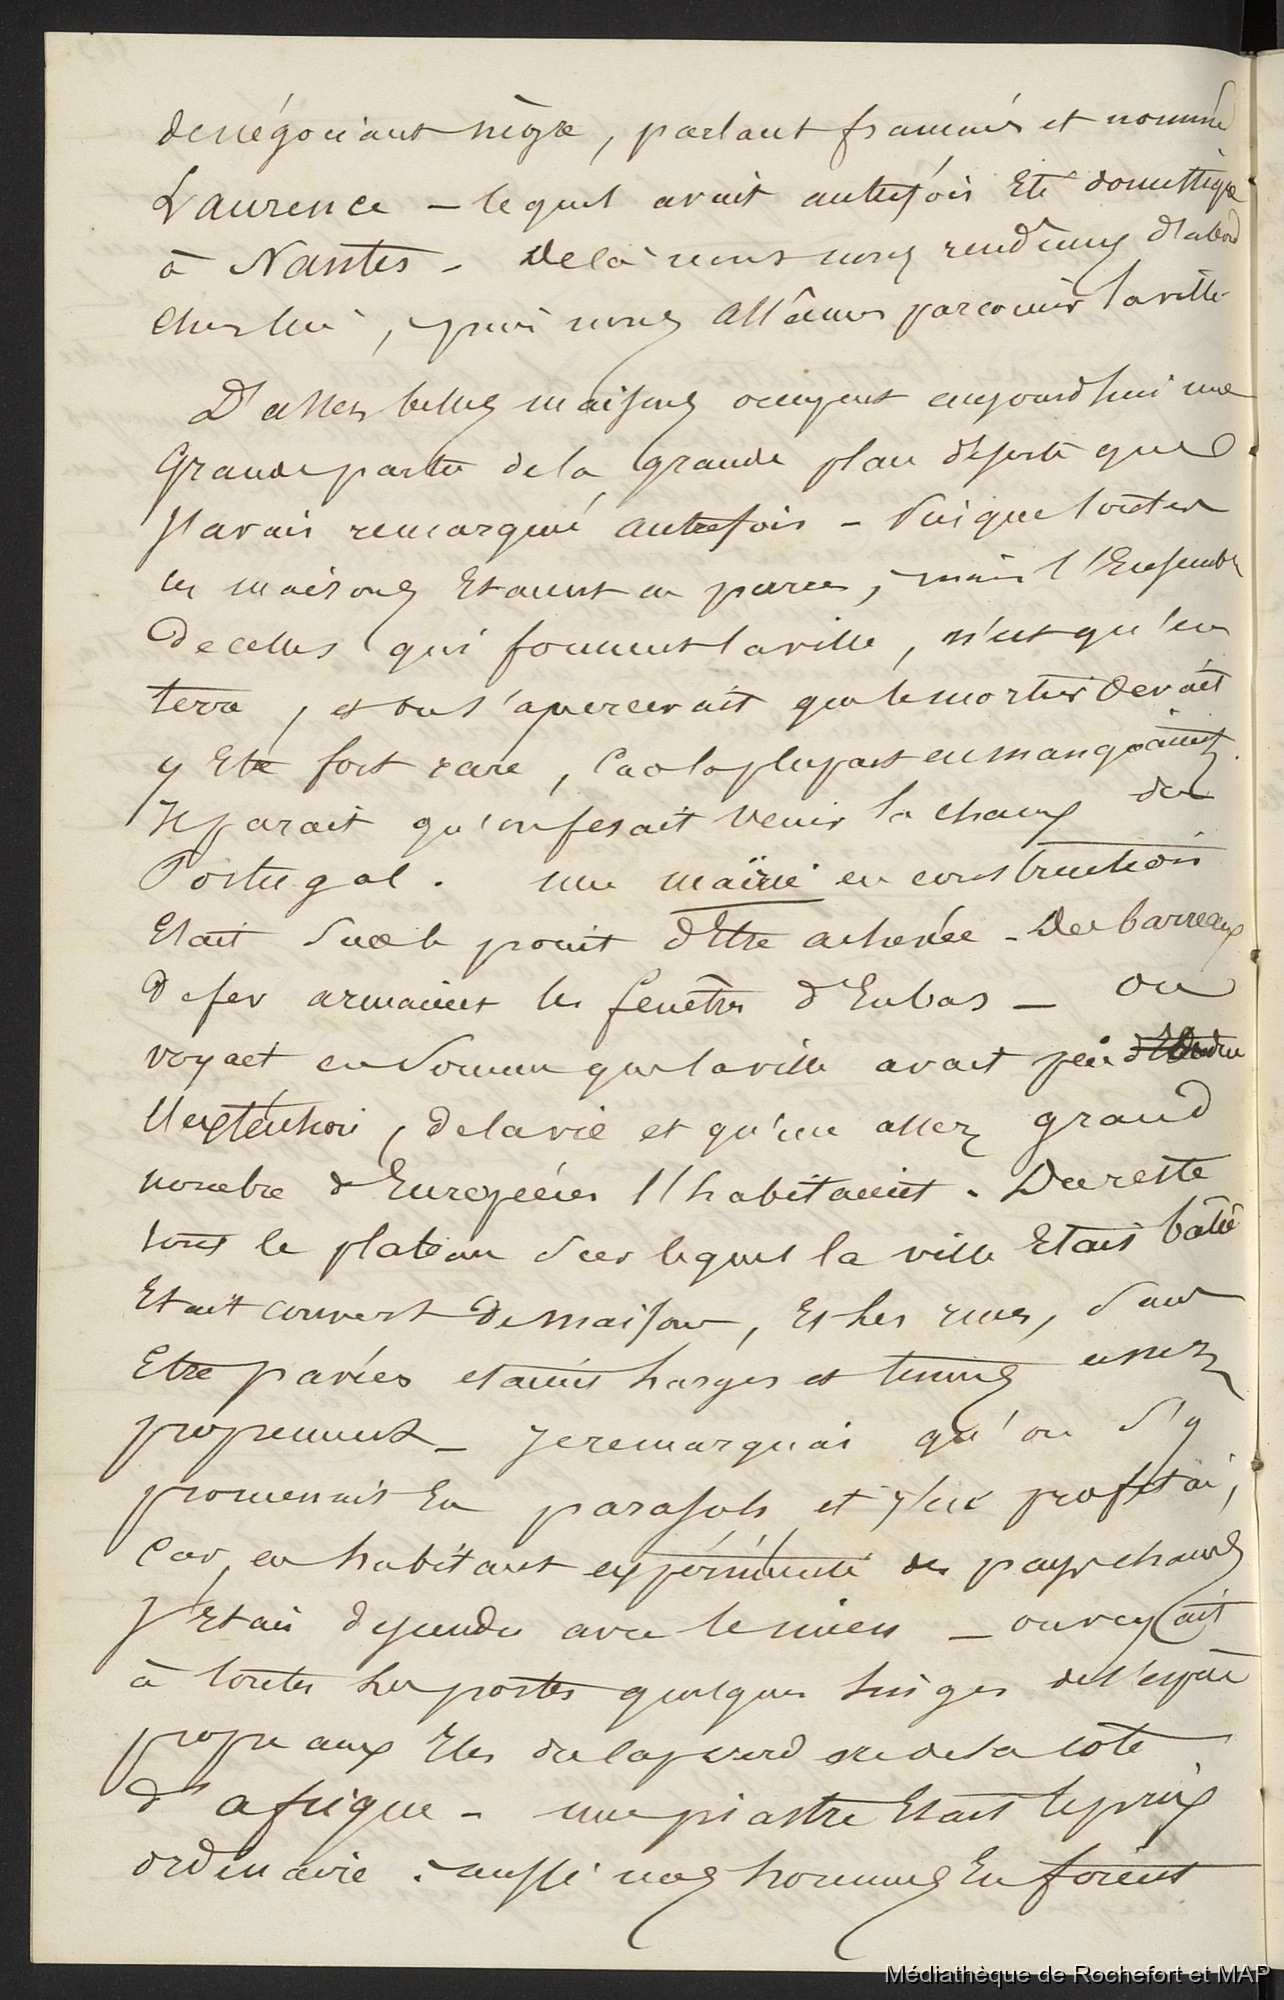 de négociant nègre, parlant français et nommé
Laurence – lequel avait autrefois Eté domestique
à Nantes – De là nous nous rendîmes d'abord
chez lui, puis nous allâmes parcourir la ville
D'assez belles maisons occupent aujourd'hui une
Grande partie de la grande place déserte que
J'avais remarqué autrefois – Presque toutes
les maisons Etaient en pierres, mais l'Ensemble
De celles qui forment la ville, n'est qu'en
terre, et on s'apercevait que le mortier devait
y Etre fort rare, Car la plupart en manquaient
Il parait qu'on fesait venir la chaux du
Portugal. une maïrie en construction
Etait sur le point d'Etre achevée – Des barreaux
De fer armaient les fenêtres d'Enbas – on
voyait en somme que la ville avait peu
l'extention, de la vie et qu'un assez grand
nombre d'Européens l'habitaient. Du reste
tout le plateau sur lequel la ville Etait bâtie
Etait couvert de maisons, Et les rues, sans
Etre pavées etaient larges et tenues assez
proprement – Je remarquai qu'on s'y
promenait En parasols et j'en profitai,
Car, en habitant expérimenté des pays chauds
J'Etais descendu avec le mien – on voyait
à toutes les portes quelques singes de l'espèce
propre aux Iles du cap verd et de la cote
d'afrique – une piastre Etait le prix
ordinaire. aussi nos hommes En firent
Médiathèque de Rochefort et MAP